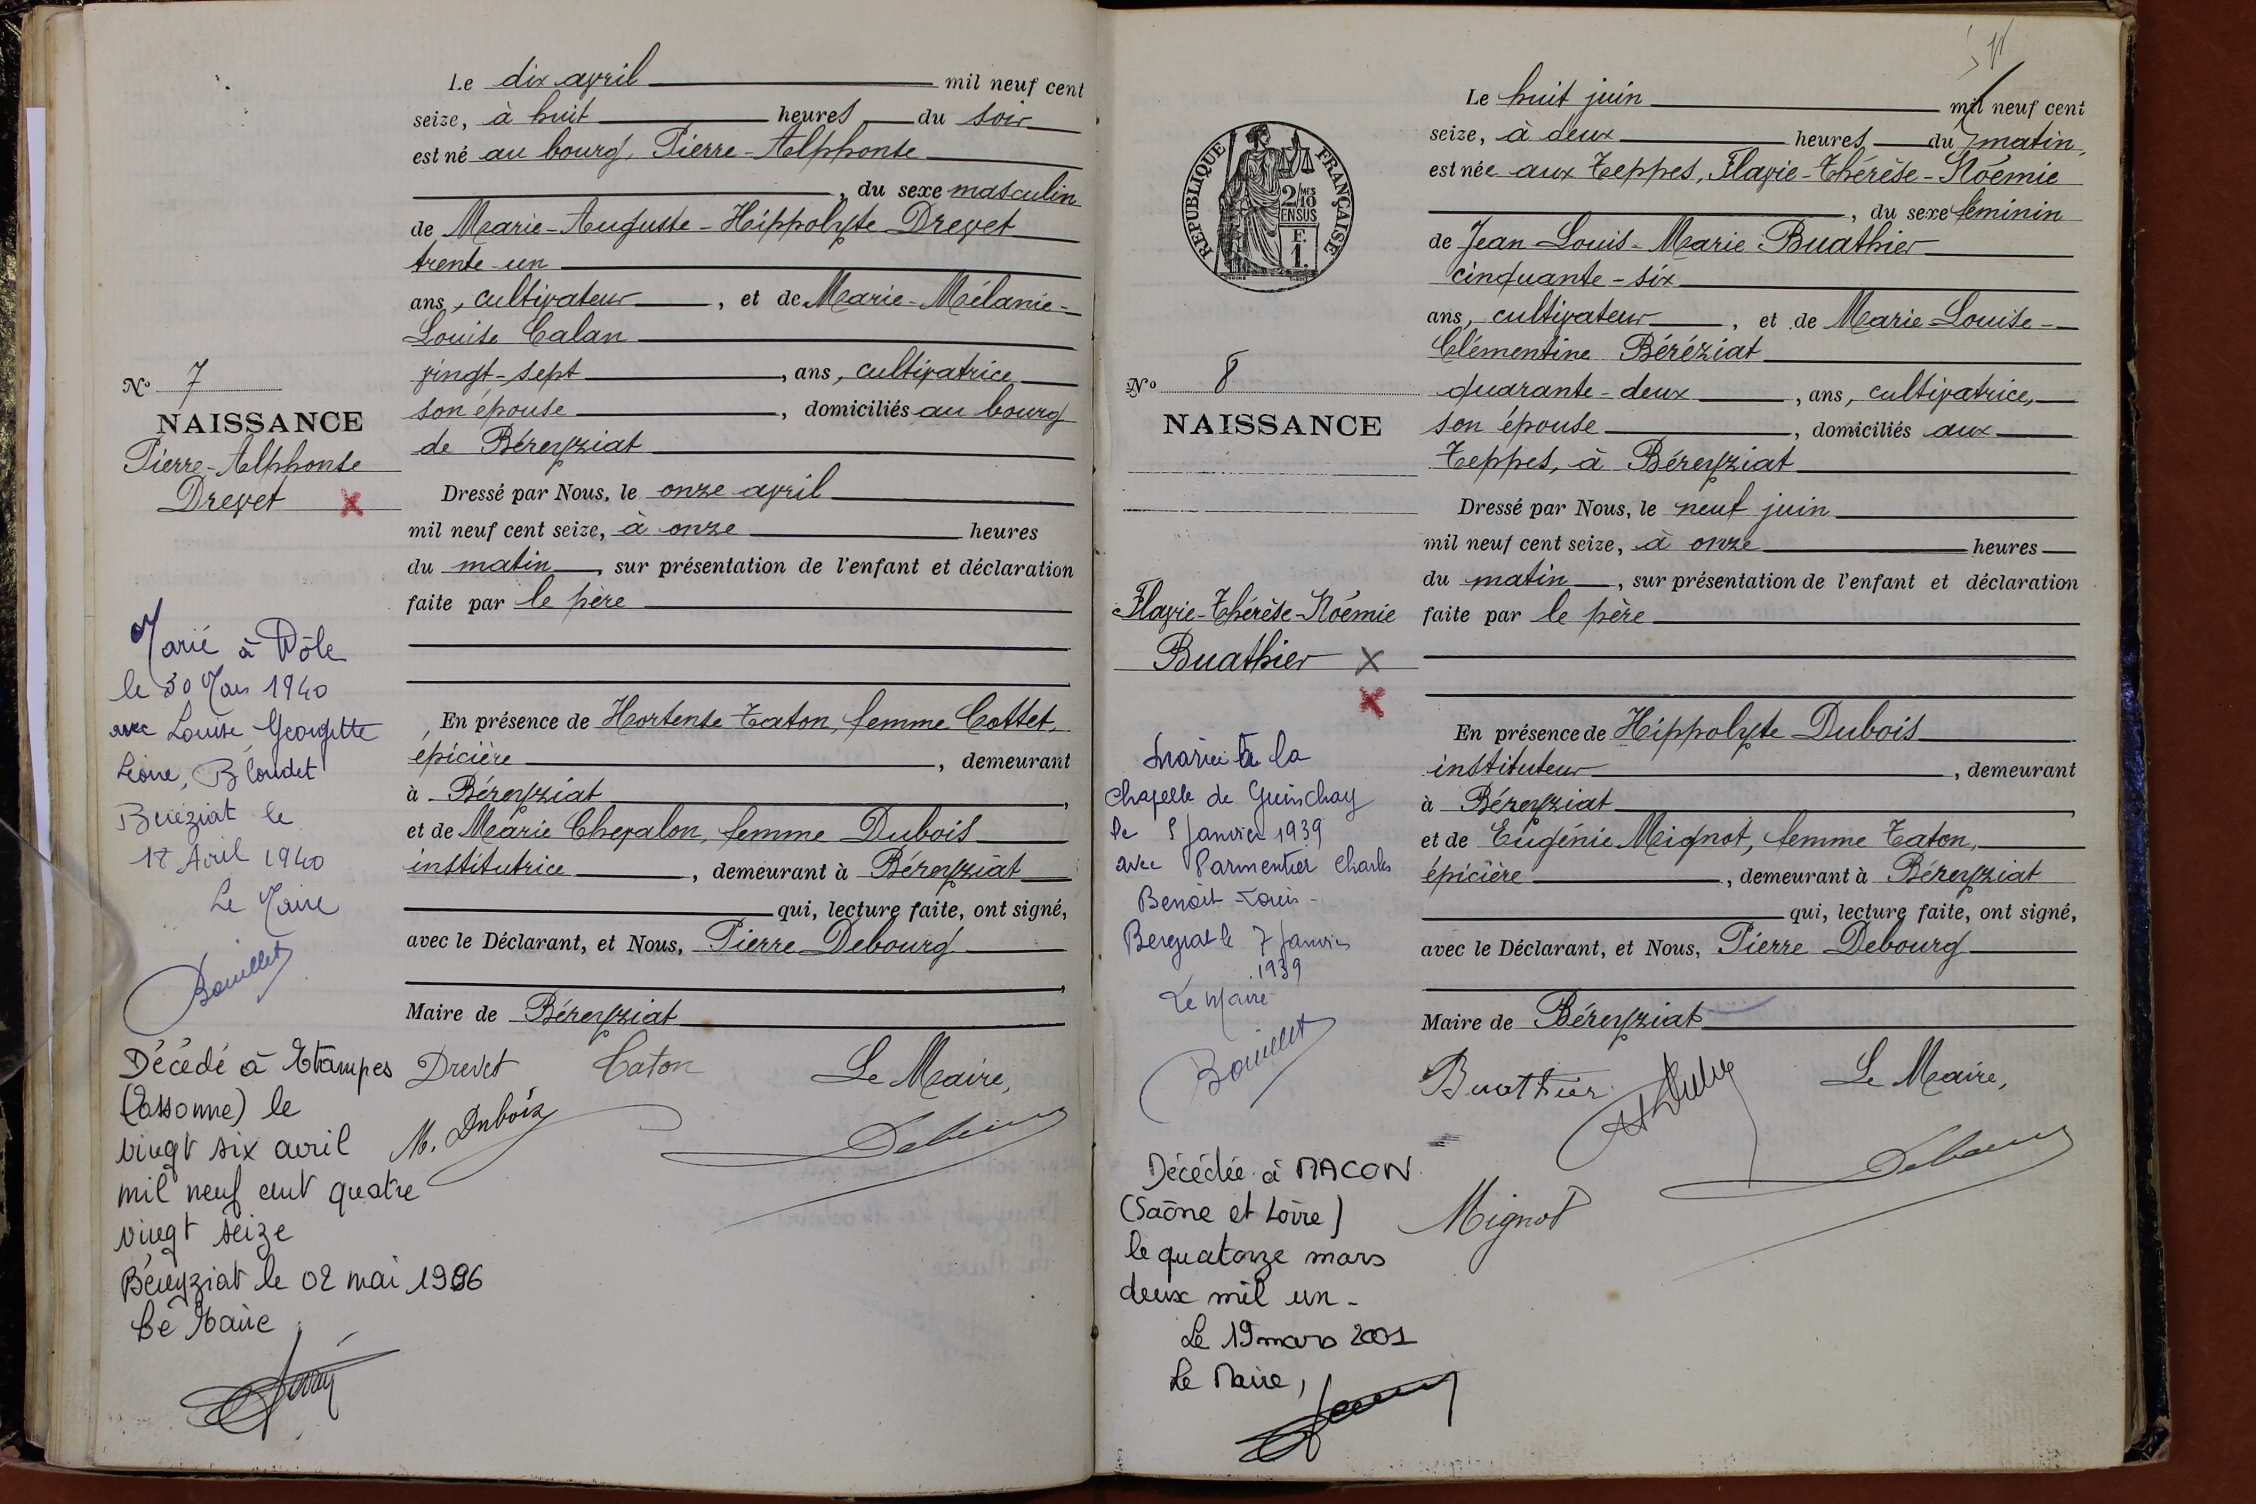 Le dix avril mil neuf cent
seize, à huit heures du soir
est né au bourg, Pierre-Alphonse
, du sexe masculin
de Marie-Auguste-Hippolyte Drevet
trente-un
ans, cultivateur, et de Marie-Mélanie-
Louise Calan
vingt-sept, ans, cultivatrice
son épouse, domiciliés au bourg
de Béreyziat
Dressé par Nous, le onze avril
mil neuf cent seize, à onze heures
du matin, sur présentation de l'enfant et déclaration
faite par le père
En présence de Hortense Caton, femme Cottet,
épicière, demeurant
à Béreyziat,
et de Marie Chevalon, femme Dubois
institutrice, demeurant à Béreyziat
qui, lecture faite, ont signé,
avec le Déclarant, et Nous, Pierre Debourg
,
Maire de Béreyziat
Drevet Caton Le Maire,
M. Dubois
No 7
NAISSANCE
Pierre-Alphonse
Drevet
Marié à Dôle
le 30 Mars 1940
avec Louise Georgette
Léone, Blondet
Béréziat le
Avril 1940
Le Maire
Bouillet
Décédé à Etampes
(Essonne) le
vingt six avril
mil neuf cent quatre
vingt seize
Béreyziat le 02 mai 1996
Le Maire
Le huit juin mil neuf cent
seize, à deux heures du matin,
est née aux Teppes, Flavie-Thérèse-Noémie
, du sexe féminin
de Jean-Louis-Marie Buathier
cinquante-six
ans, cultivateur, et de Marie-Louise-
Clémentine Béréziat
quarante-deux, ans, cultivatrice,
son épouse, domiciliés aux
Teppes, à Béreyziat
Dressé par Nous, le neuf juin
mil neuf cent seize, à onze heures
du matin, sur présentation de l'enfant et déclaration
faite par le père
En présence de Hippolyte Dubois
instituteur, demeurant
à Béreyziat,
et de Eugénie Mignot, femme Caton,
épicière, demeurant à Béreyziat
qui, lecture faite, ont signé,
avec le Déclarant, et Nous, Pierre Debourg
Maire de Béreyziat
Buathier Le Maire,
Mignot
RÉPUBLIQUE FRANÇAISE
2/10 MES
EN SUS
F.
1.
No 8
NAISSANCE
Flavie-Thérèse-Noémie
Buathier
Mariée à la
chapelle de Guinchay
le 5 Janvier 1939
avec Parmentier Charles
Benoit Louis-
Bereziat le 7 Janvier
1939
Le Maire
Bouillet
Décédée à MACON
(Saône et Loire)
le quatorze mars
deux mil un-
Le 19 mars 2001
Le Maire,